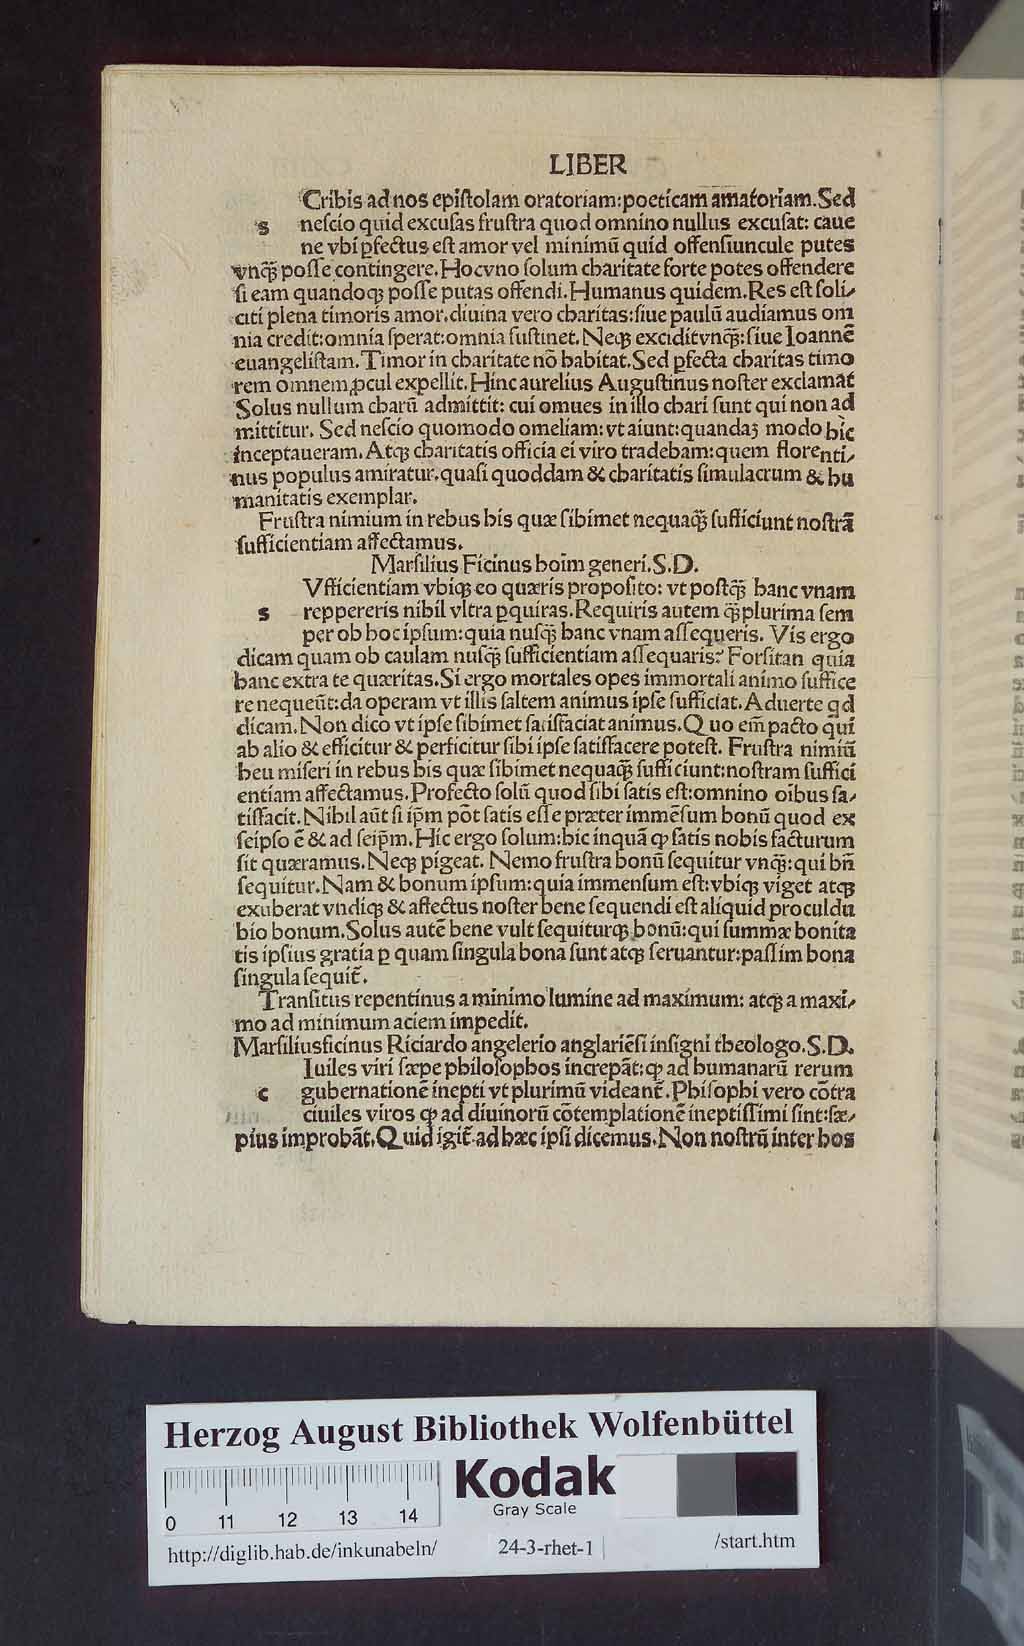 LIBER
Cribis ad nos epiſtolam oratoriam:poeticam amatoriam.Sed
s neſcio quid excuſas fruſtra quod omnino nullus excuſat: caue
ne vbi ꝑfectus eſt amor vel minimū quid offenſiuncule putes
vnqꝫ̄ poſſe contingere.Hocvno ſolum charitate forte potes offendere
ſi eam quandoqꝫ poſſe putas offendi.Humanus quidem.Res eſt ſoli⸗
citi plena timoris amor.diuina vero charitas:ſiue paulū audiamus om
nia credit:omnia ſperat:omnia ſuſtinet.Neqꝫ exciditvnqꝫ̄:ſiue Ioannē
euangeliſtam.Timor in charitate nō habitat.Sed ꝑfecta charitas timo
rem omnem ꝓcul expellit.Hinc aurelius Auguſtinus noſter exclamat
Solus nullum charū admittit: cui omues in illo chari ſunt qui non ad
mittitur. Sed neſcio quomodo omeliam: vt aiunt:quandaꝫ modo hic
inceptaueram.Atqꝫ charitatis officia ei viro tradebam:quem florenti⸗
nus populus amiratur.quaſi quoddam & charitatis ſimulacrum & hu
manitatis exemplar.
Fruſtra nimium in rebus his quæ ſibimet nequaqꝫ̄ ſufficiunt noſtrā
ſufficientiam affectamus.
Marſilius Ficinus hoīm generi.S.D.
Vfficientiam vbiqꝫ eo quæris propoſito: vt poſtqꝫ̄ hanc vnam
s reppereris nihil vltra ꝑquiras.Requiris autem qꝫ̄ plurima ſem
per ob hoc ipſum:quia nuſqꝫ̄ hanc vnam aſſequeris. Vis ergo
dicam quam ob cauſam nuſqꝫ̄ ſufficientiam aſſequaris? Forſitan quia
hanc extra te quæritas.Si ergo mortales opes immortali animo ſuffice
re nequeūt:da operam vt illis ſaltem animus ipſe ſufficiat.Aduerte qd
dicam.Non dico vt ipſe ſibimet ſatiſfaciat animus.Quo em̄ pacto qui
ab alio & efficitur & perficitur ſibi ipſe ſatiſfacere poteſt. Fruſtra nimiū
heu miſeri in rebus his quæ ſibimet nequaqꝫ̄ ſufficiunt:noſtram ſuffici
entiam affectamus.Profecto ſolū quod ſibi ſatis eſt:omnino oībus ſa⸗
tiſfacit.Nihil aūt ſi ip̄m pōt ſatis eſſe præter immēſum bonū quod ex
ſeipſo ē & ad ſeip̄m.Hic ergo ſolum:hic inquā ꝙ ſatis nobis facturum
ſit quæramus.Neqꝫ pigeat. Nemo fruſtra bonū ſequitur vnqꝫ̄:qui bn̄
ſequitur.Nam & bonum ipſum:quia immenſum eſt:vbiqꝫ viget atqꝫ
exuberat vndiqꝫ & affectus noſter bene ſequendi eſt aliquid proculdu
bio bonum.Solus autē bene vult ſequiturqꝫ bonū:qui ſummæ bonita
tis ipſius gratia ꝑ quam ſingula bona ſunt atqꝫ ſeruantur:paſſim bona
ſingula ſequit̄.
Tranſitus repentinus a minimo lumine ad maximum: atqꝫ a maxi⸗
mo ad minimum aciem impedit.
Marſiliusficinus Riciardo angelerio anglariēſi inſigni theologo.S.D.
Iuiles viri ſæpe philoſophos increpāt:ꝙ ad humanarū rerum
c gubernationē inepti vt plurimū videant̄.Phiſophi vero cōtra
ciuiles viros ꝙ ad diuinorū cōtemplationē ineptiſſimi ſint:ſæ⸗
pius improbāt.Quid igit̄ ad hæc ipſi dicemus.Non noſtrū inter hos
Herzog August Bibliothek Wolfenbüttel
Kodak
Gray Scale
0 11 12 13 14
http://diglib.hab.de/inkunabeln/ 24-3-rhet-1 /start.htm